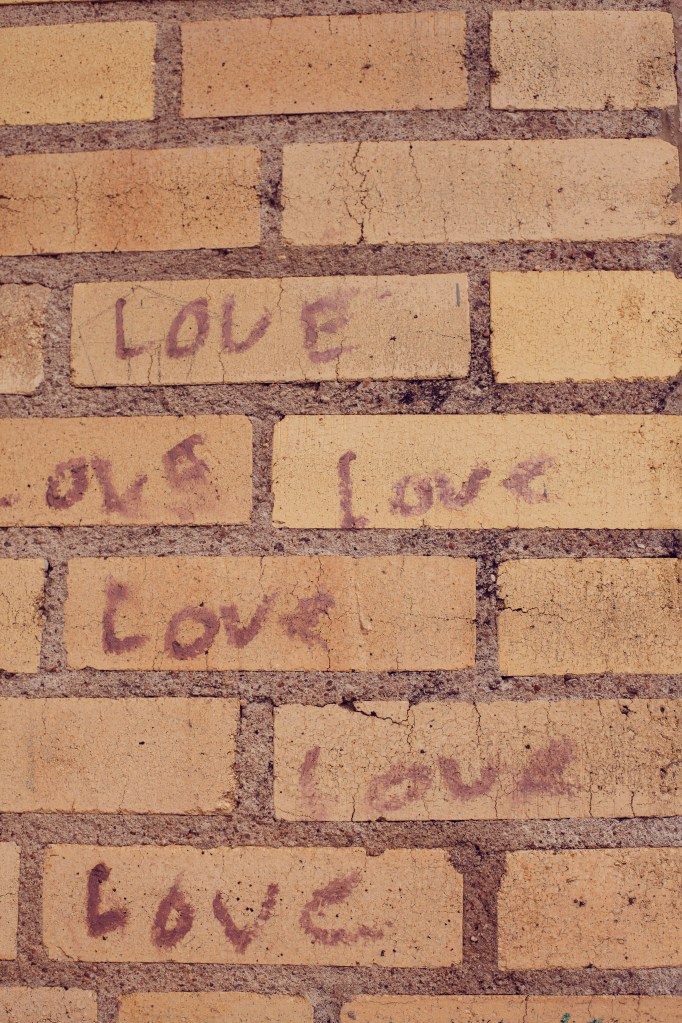 LOVE
LOVE LOVE
LOVE
LOVE
LOVE